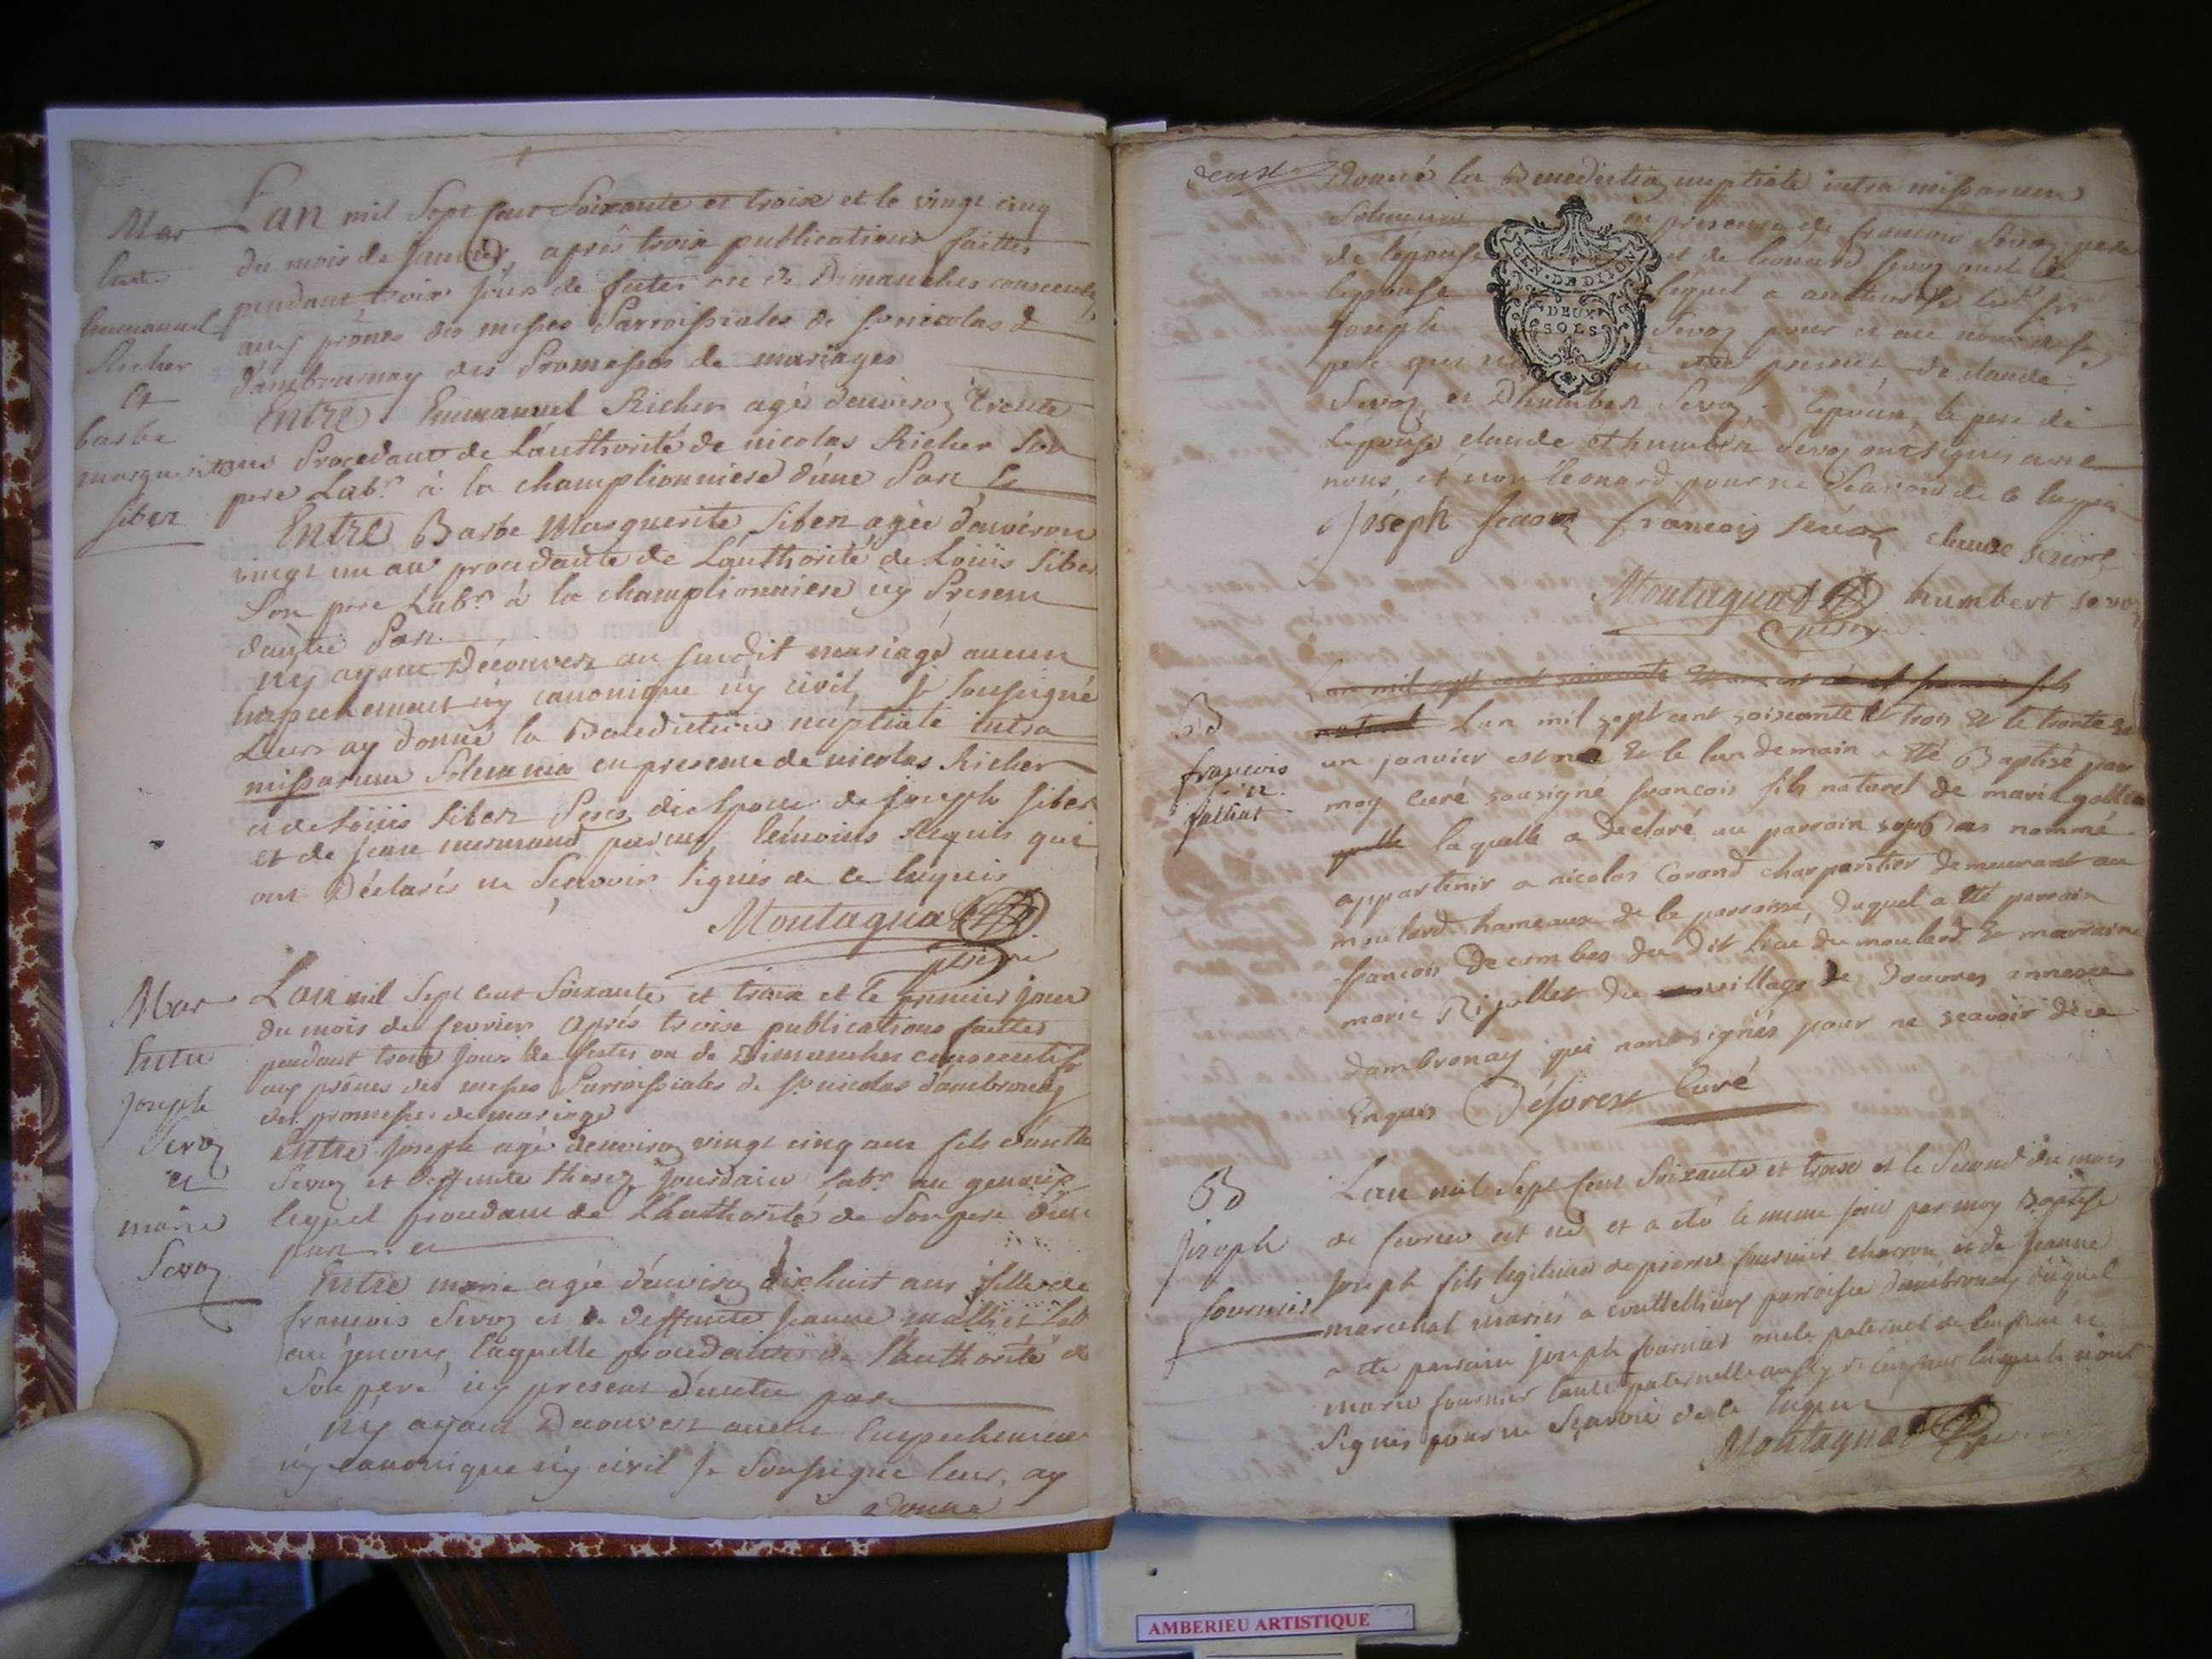 Mar
Entre
Emmanuel
Richer
et
barbe
marguerite
siber
L'an mil sept cent soixante et troix et le vingt cinq
du mois de janvier, aprés troix publications faittes
pendant troix jours de fetes ou de Dimanches consecutifs
aux prônes des messes Parroissiales de st nicolas d
d'ambournay des Promesses de mariages
Entre Emmanuel Richer agé d'environ trente
ans Procedant de L'authorité de nicolas Richer son
pere Labr. à la championniere d'une Part et
Entre Barbe Marguerite Siber agée d'environ
vingt un an procedante de Lauthorité de Loüis Siber
Son pere Labr. à la championniere icy Present
d'autre Part.
N'y ayant Découvert au susdit mariage aucun
Empechement n'y canonique n'y civil, Je soussigné
Leurs ay donné la Benediction nuptiale intra
missarum solemnia en presence de nicolas Richer
et de Loüis Siber Peres des Epoux de joseph Siber
et de jean mermand parens, témoins Requis qui
ont Déclarés ne Sçavoir signés de ce Enquis
Montagnat
Mar
Entre
Joseph
Sevoz
et
marie
Sevoz
L'an mil Sept cent Soixante et troix et le premier jour
du mois de fevrier aprés troix publications faittes
pendant troix jours de fetes ou de Dimanches consecutifs
aux prônes des messes Parroissiales de st nicolas d'ambronay
des promesses de mariage
Entre joseph agé d'environ vingt cinq ans fils d'
Sevoz et deffunte jourdain Labr. au genoux
lequel procedant de L'hauthorité de Son pere d'une
part et
Entre marie agée d'environ dix huit ans fille de
francois Sevoz et de deffunte jeanne Lab
au genoux, laquelle procedante de l'hauthorité de
Son pere icy present d'autre part
N'y ayant Decouvert aucun Empechement
n'y canonique n'y civil je Soussigné leur ay
donné
donné la Benediction nuptiale intra missarum
Solemnia en presence de francois Sevoz pere
de l'epouse et de leonard Sevoz oncle de
lepouse lequel a authorisé
joseph Sevoz pour et au nom de
pere qui present de claude
Sevoz et D'humber Sevoz. lepoux, le pere de
lepouse claude et humber Sevoz ont signés avec
nous, et non leonard pour ne Sçavoir de ce Enquis
GEN. DE DIJON
DEUX
SOLS
Joseph francois sevoz claude sevoz
Montagnat humbert sevoz
B
francois
galliat
L'an mil sept cent soixante
L'an mil sept cent soixante et trois et le trente et
un janvier est né et le lendemain a été Baptisé par
moy curé sousigné francois fils naturel de marie
laquelle a declaré au parrain nommé
appartenir a nicolas corand charpantier demeurant au
moulard hameaux de la parroisse, duquel a été parrain
francois Decombes du dit lieu du moulard et marraine
marie du village de Douvres annexe
dambronay qui nont signés pour ne scavoir de ce
Enquis Déforest Curé
B
joseph
fournier
L'an mil Sept Cent Soixante et troix et le Second du mois
de fevrier est né et a eté le meme jour par moy Baptisé
Joseph fils legitime de pierre fournier charron et de jeanne
marechal mariés a couttellieux parroisse d'ambronay duquel
a ete parrain joseph fournier oncle paternel de l'enfant et
marie fournier tante paternelle aussy de l'enfant lesquels n'ont
Signés pour ne Sçavoir de ce Enquis
Montagnat
AMBERIEU ARTISTIQUE